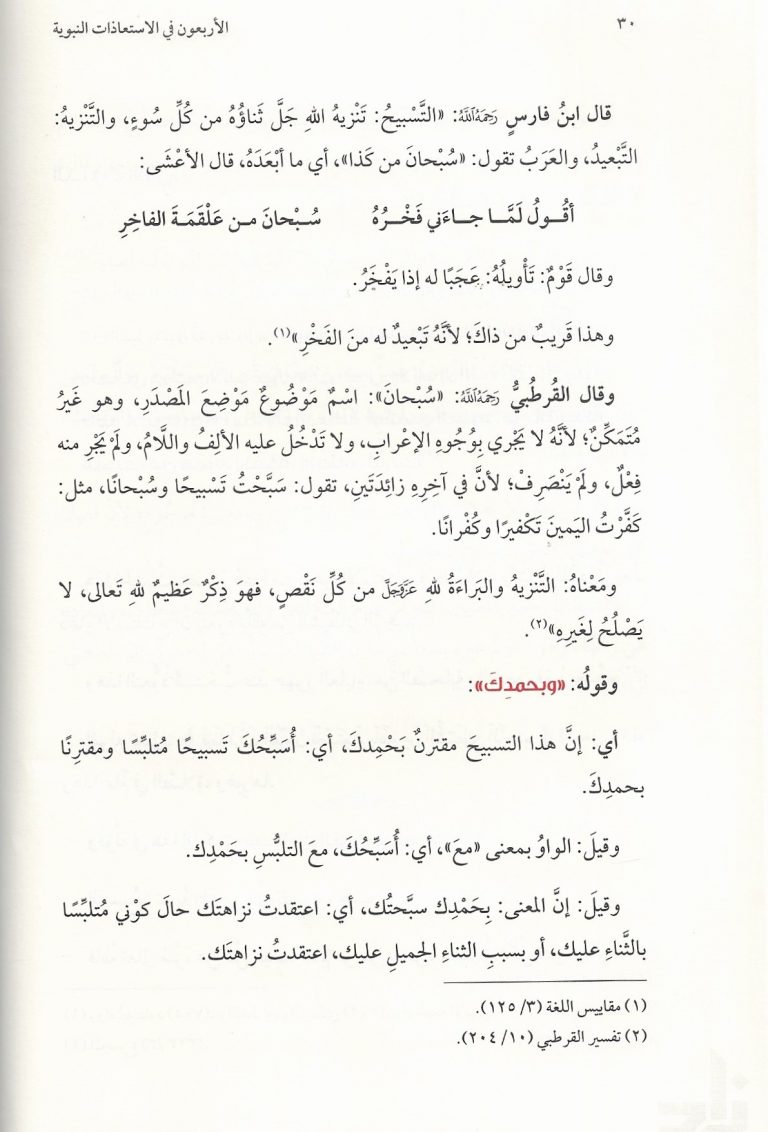 ٣٠
الأربعون في الاستعاذات النبوية
قال ابنُ فارسٍ رَحِمَهُ ٱللَّهُ: «التَّسْبِيحُ: تَنْزِيهُ اللهِ جَلَّ ثَناؤُهُ من كُلِّ سُوءٍ، والتَّنْزِيهُ:
التَّبْعِيدُ، والعَرَبُ تقول: «سُبْحانَ من كَذا»، أي ما أبْعَدَهُ، قال الأعْشَى:
أقُـولُ لَمَّـا جـاءَني فَخْـرُهُ سُـبْحانَ مـن عَلْقَمَـةَ الفاخِرِ
وقال قَوْمٌ: تَأْوِيلُهُ: عَجَبًا له إذا يَفْخَرُ.
وهذا قَرِيبٌ من ذاكَ؛ لأنَّهُ تَبْعِيدٌ له منَ الفَخْرِ»(١).
وقال القُرطُبيُّ رَحِمَهُ ٱللَّهُ: «سُبْحانَ»: اسْمٌ مَوْضُوعٌ مَوْضِعَ المَصْدَرِ، وهو غَيرُ
مُتَمَكِّنٌ؛ لأنَّهُ لا يَجْري بِوُجُوهِ الإعْرابِ، ولا تَدْخُلُ عليه الألِفُ واللَّامُ، ولَمْ يَجْرِ منه
فِعْلٌ، ولَمْ يَنْصَرِفْ؛ لأنَّ في آخِرِهِ زائِدَتَينِ، تقول: سَبَّحْتُ تَسْبيحًا وسُبْحانًا، مثل:
كَفَّرْتُ اليَمينَ تَكْفيرًا وكُفْرانًا.
ومَعْناهُ: التَّنْزيهُ والبَراءَةُ للهِ عَزَّوَجَلَّ من كُلِّ نَقْصٍ، فهوَ ذِكْرٌ عَظيمٌ للهِ تَعالى، لا
يَصْلُحُ لِغَيرِهِ»(٢).
وقولُه: «وبحمدِكَ»:
أي: إنَّ هذا التسبيحَ مقترنٌ بَحْمِدكَ، أي: أُسَبِّحُكَ تَسبيحًا مُتلبِّسًا ومقترِنًا
بحمدِكَ.
وقيلَ: الواوُ بمعنى «معَ»، أي: أُسَبِّحُكَ، معَ التلبُّسِ بحَمْدِك.
وقيلَ: إنَّ المعنى: بِحَمْدِك سبَّحتُك، أي: اعتقدتُ نزاهتَك حالَ كوْني مُتلبِّسًا
بالثَّناءِ عليك، أو بسببِ الثناءِ الجميلِ عليك، اعتقدتُ نزاهتَك.
(١) مقاييس اللغة (٣/ ١٢٥).
(٢) تفسير القرطبي (١٠/ ٢٠٤).